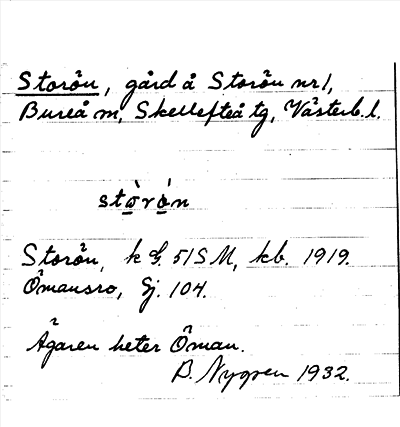 Storön, gård å Storön nr 1,
Bureå sn, Skellefteå tg, Västerb. l.
stò̱ró̱n
Storön, k G. 51 S M, kb. 1919.
Ömansro, Gj. 104.
Ägaren heter Öman.
B. Nygren 1932.